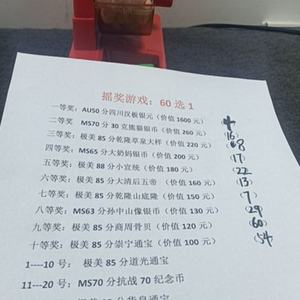 摇奖游戏：60选1
一等奖：AU50分四川汉板银元（价值1600元）
二等奖 MS70分30克熊猫银币（价值260元） 16
三等奖：极美85分乾隆草泉大样（价值220元） 8
四等奖：MS65分大奶妈银币（价值200元） (17)
五等奖：极美88分小宣统（价值180元） (22)
六等奖：极美85分大清后五帝（价值160元） (13)
七等奖：极美85分乾隆山底隆（价值150元） (7)
八等奖：MS63分孙中山像银币（价值130元） (29)
九等奖：极美85分商周骨贝（价值120元） (60)
十等奖：极美85分崇宁通宝（价值100元） (54)
1----10号：极美85分道光通宝
11---20号：MS70分抗战70纪念币